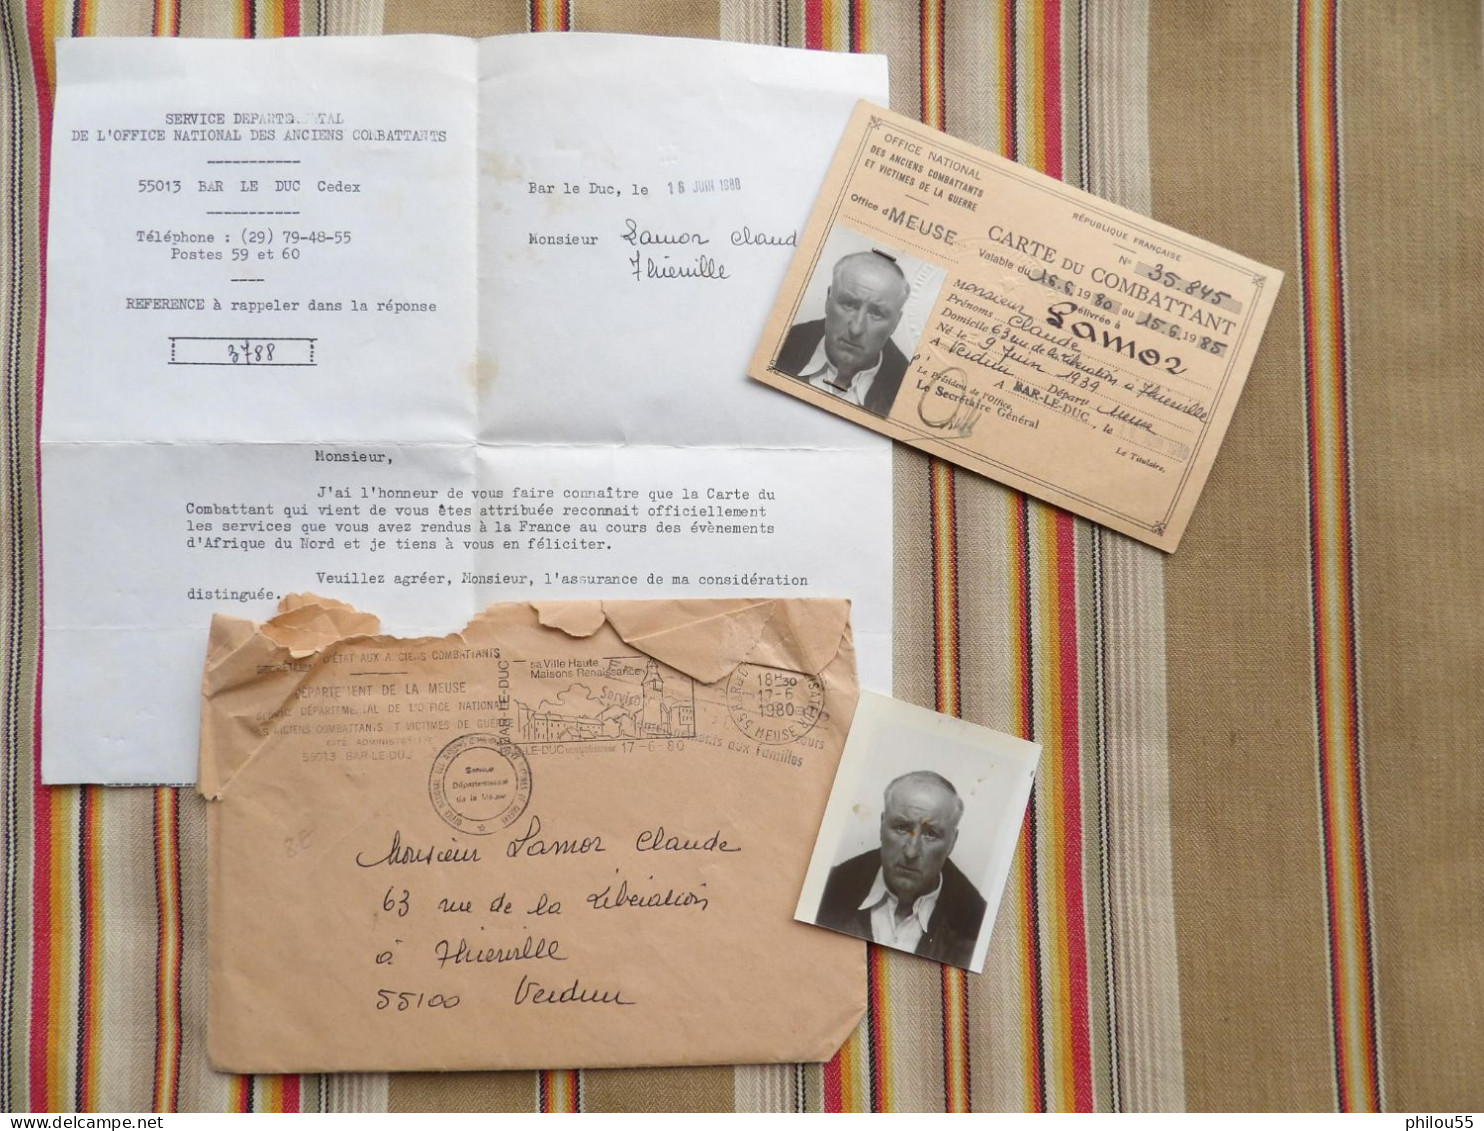 SERVICE DEPARTEMENTAL
DE L'OFFICE NATIONAL DES ANCIENS COMBATTANTS
55013 BAR LE DUC Cedex
Téléphone : (29) 79-48-55
Postes 59 et 60
REFERENCE à rappeler dans la réponse
3788
Bar le Duc, le 16 JUIN 1980
Monsieur Lamoz Claud
Thierville
Monsieur,
J'ai l'honneur de vous faire connaître que la Carte du
Combattant qui vient de vous êtes attribuée reconnait officiellement
les services que vous avez rendus à la France au cours des évènements
d'Afrique du Nord et je tiens à vous en féliciter.
Veuillez agréer, Monsieur, l'assurance de ma considération
distinguée.
OFFICE NATIONAL
DES ANCIENS COMBATTANTS
ET VICTIMES DE LA GUERRE
Office d MEUSE
RÉPUBLIQUE FRANÇAISE
CARTE DU COMBATTANT
N° 35.845
Valable du 16.6.1980 au 15.6.1985
délivrée à
Monsieur Lamoz
Prénoms Claude
Domicile 63 rue de la Libération à Thierville
Né le 9 Juin 1939
A Verdun Départ Meuse
A BAR-LE-DUC, le
Le Président de l'Office,
Le Secrétaire Général
Le Titulaire,
SECRÉTARIAT D'ÉTAT AUX ANCIENS COMBATTANTS
DÉPARTEMENT DE LA MEUSE
SERVICE DÉPARTEMENTAL DE L'OFFICE NATIONAL
DES ANCIENS COMBATTANTS ET VICTIMES DE GUERRE
CITÉ ADMINISTRATIVE
55013 BAR-LE-DUC
BAR-LE-DUC
sa Ville Haute
Maisons Renaissance
18H30
17-6
1980
MEUSE
17-6-80
aux familles
Service
Départemental
de la Meuse
Monsieur Lamoz Claude
63 rue de la Libération
à Thierville
55100 Verdun
philou55